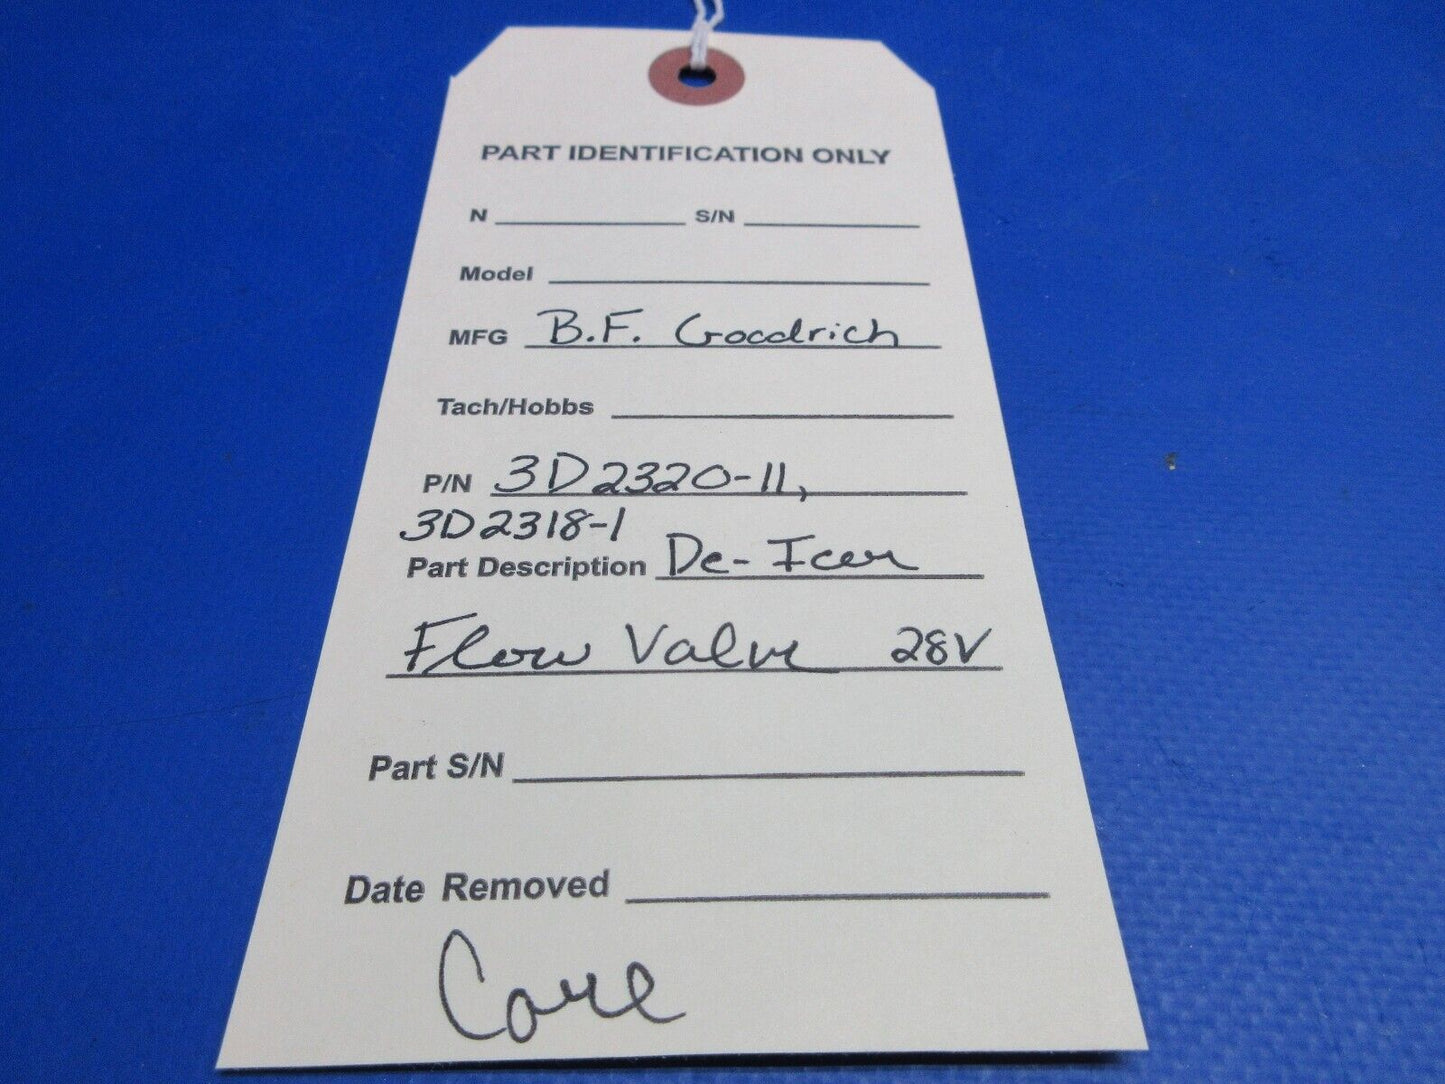 PART IDENTIFICATION ONLY
N S/N
Model
MFG B.F. Goodrich
Tach/Hobbs
P/N 3D2320-11,
3D2318-1
Part Description De-Icer
Flow Valve 28V
Part S/N
Date Removed
Core